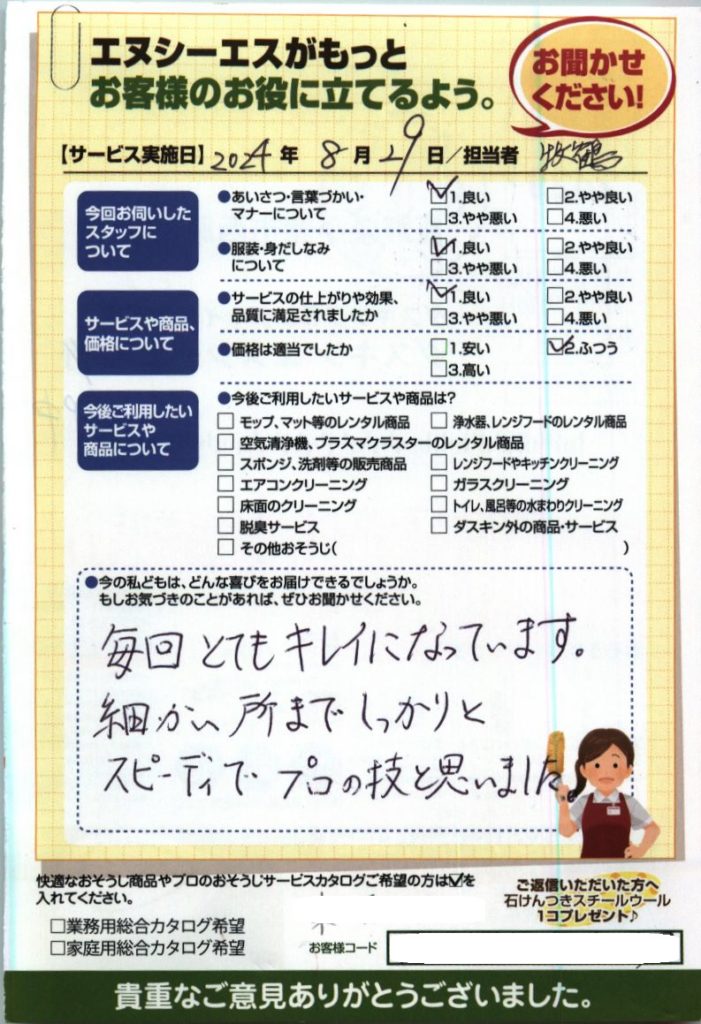 エヌシーエスがもっと
お客様のお役に立てるよう。
お聞かせ
ください!
【サービス実施日】2024年 8月29日/担当者 牧鶴
今回お伺いした
スタッフに
ついて
●あいさつ・言葉づかい・
マナーについて
☑1.良い □2.やや良い
□3.やや悪い □4.悪い
●服装・身だしなみ
について
☑1.良い □2.やや良い
□3.やや悪い □4.悪い
サービスや商品、
価格について
●サービスの仕上がりや効果、
品質に満足されましたか
☑1.良い □2.やや良い
□3.やや悪い □4.悪い
●価格は適当でしたか
□1.安い ☑2.ふつう
□3.高い
今後ご利用したい
サービスや
商品について
●今後ご利用したいサービスや商品は?
□ モップ、マット等のレンタル商品 □ 浄水器、レンジフードのレンタル商品
□ 空気清浄機、プラズマクラスターのレンタル商品
□ スポンジ、洗剤等の販売商品 □ レンジフードやキッチンクリーニング
□ エアコンクリーニング □ ガラスクリーニング
□ 床面のクリーニング □ トイレ、風呂等の水まわりクリーニング
□ 脱臭サービス □ ダスキン外の商品・サービス
□ その他おそうじ( )
●今の私どもは、どんな喜びをお届けできるでしょうか。
もしお気づきのことがあれば、ぜひお聞かせください。
毎回とてもキレイになっています。
細かい所までしっかりと
スピーディでプロの技と思いました。
快適なおそうじ商品やプロのおそうじサービスカタログご希望の方は☑を
入れてください。
□業務用総合カタログ希望
□家庭用総合カタログ希望
ご返信いただいた方へ
石けんつきスチールウール
1コプレゼント♪
お客様コード
貴重なご意見ありがとうございました。